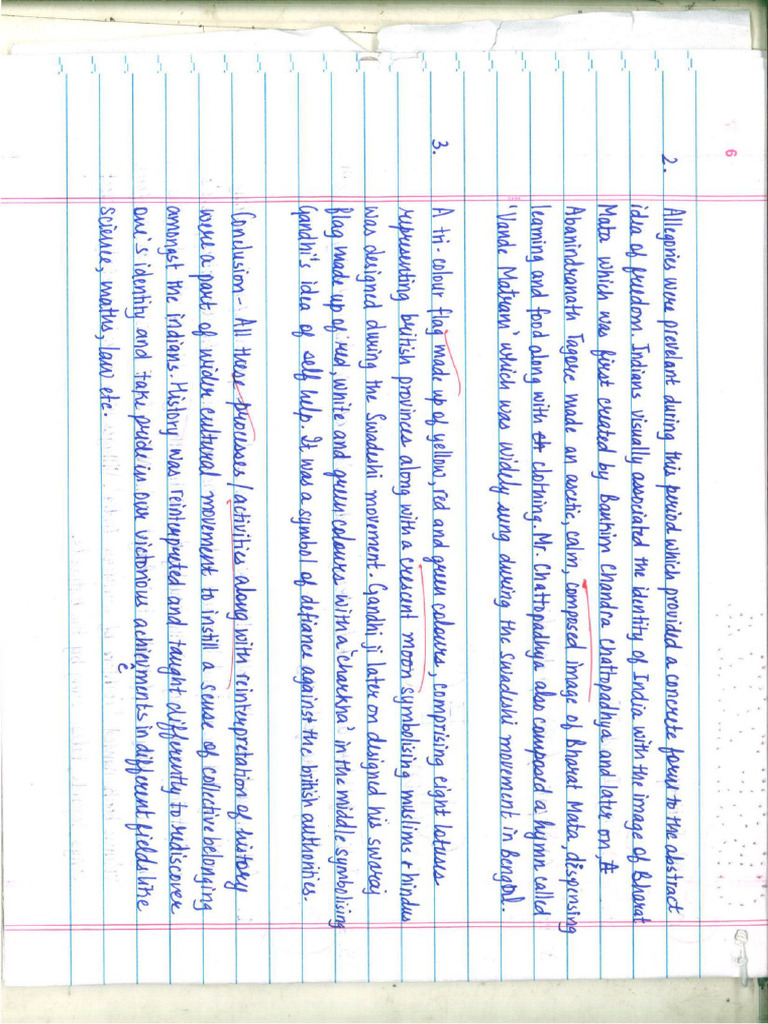 6
2. Allegories were prevelant during this period which provided a concrete form to the abstract
idea of freedom. Indians visually associated the identity of India with the image of Bharat
Mata which was first created by Bankim Chandra Chattopadhya and later on, A
Abanindranath Tagore made an ascetic, calm, composed image of Bharat Mata, dispensing
learning and food along with clothing. Mr. Chattopadhya also composed a hymn called
'Vande Matram' which was widely sung during the Swadeshi movement in Bengal.
3. A tri-colour flag made up of yellow, red and green colours, comprising eight lotuses
representing british provinces along with a crescent moon symbolising muslims + hindus
was designed during the Swadeshi movement. Gandhi ji later on designed his swaraj
flag made up of red, white and green colours with a 'charkha' in the middle symbolising
Gandhi's idea of self help. It was a symbol of defiance against the british authorities.
Conclusion - All these processes / activities along with reinterpretation of history
were a part of wider cultural movement to instill a sense of collective belonging
amongst the indians. History was reinterpreted and taught differently to rediscover
one's identity and take pride in our victorious achievements in different fields like
science, maths, law etc.